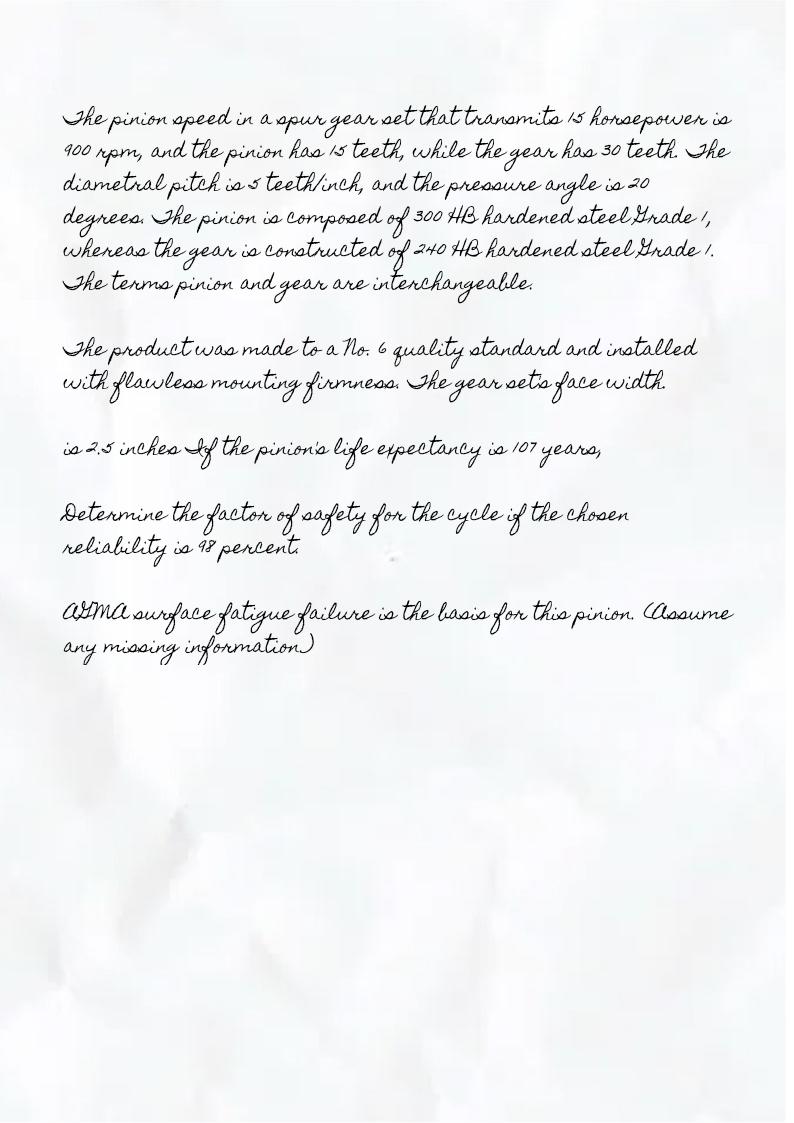 The pinion speed in a spur gear set that transmits 15 horsepower is
900 rpm, and the pinion has 15 teeth, while the gear has 30 teeth. The
diametral pitch is 5 teeth/inch, and the pressure angle is 20
degrees. The pinion is composed of 300 HB hardened steel Grade 1,
whereas the gear is constructed of 240 HB hardened steel Grade 1.
The terms pinion and gear are interchangeable.
The product was made to a No. 6 quality standard and installed
with flawless mounting firmness. The gear set's face width.
is 2.5 inches If the pinion's life expectancy is 107 years,
Determine the factor of safety for the cycle if the chosen
reliability is 98 percent.
AGMA surface fatigue failure is the basis for this pinion. (Assume
any missing information)